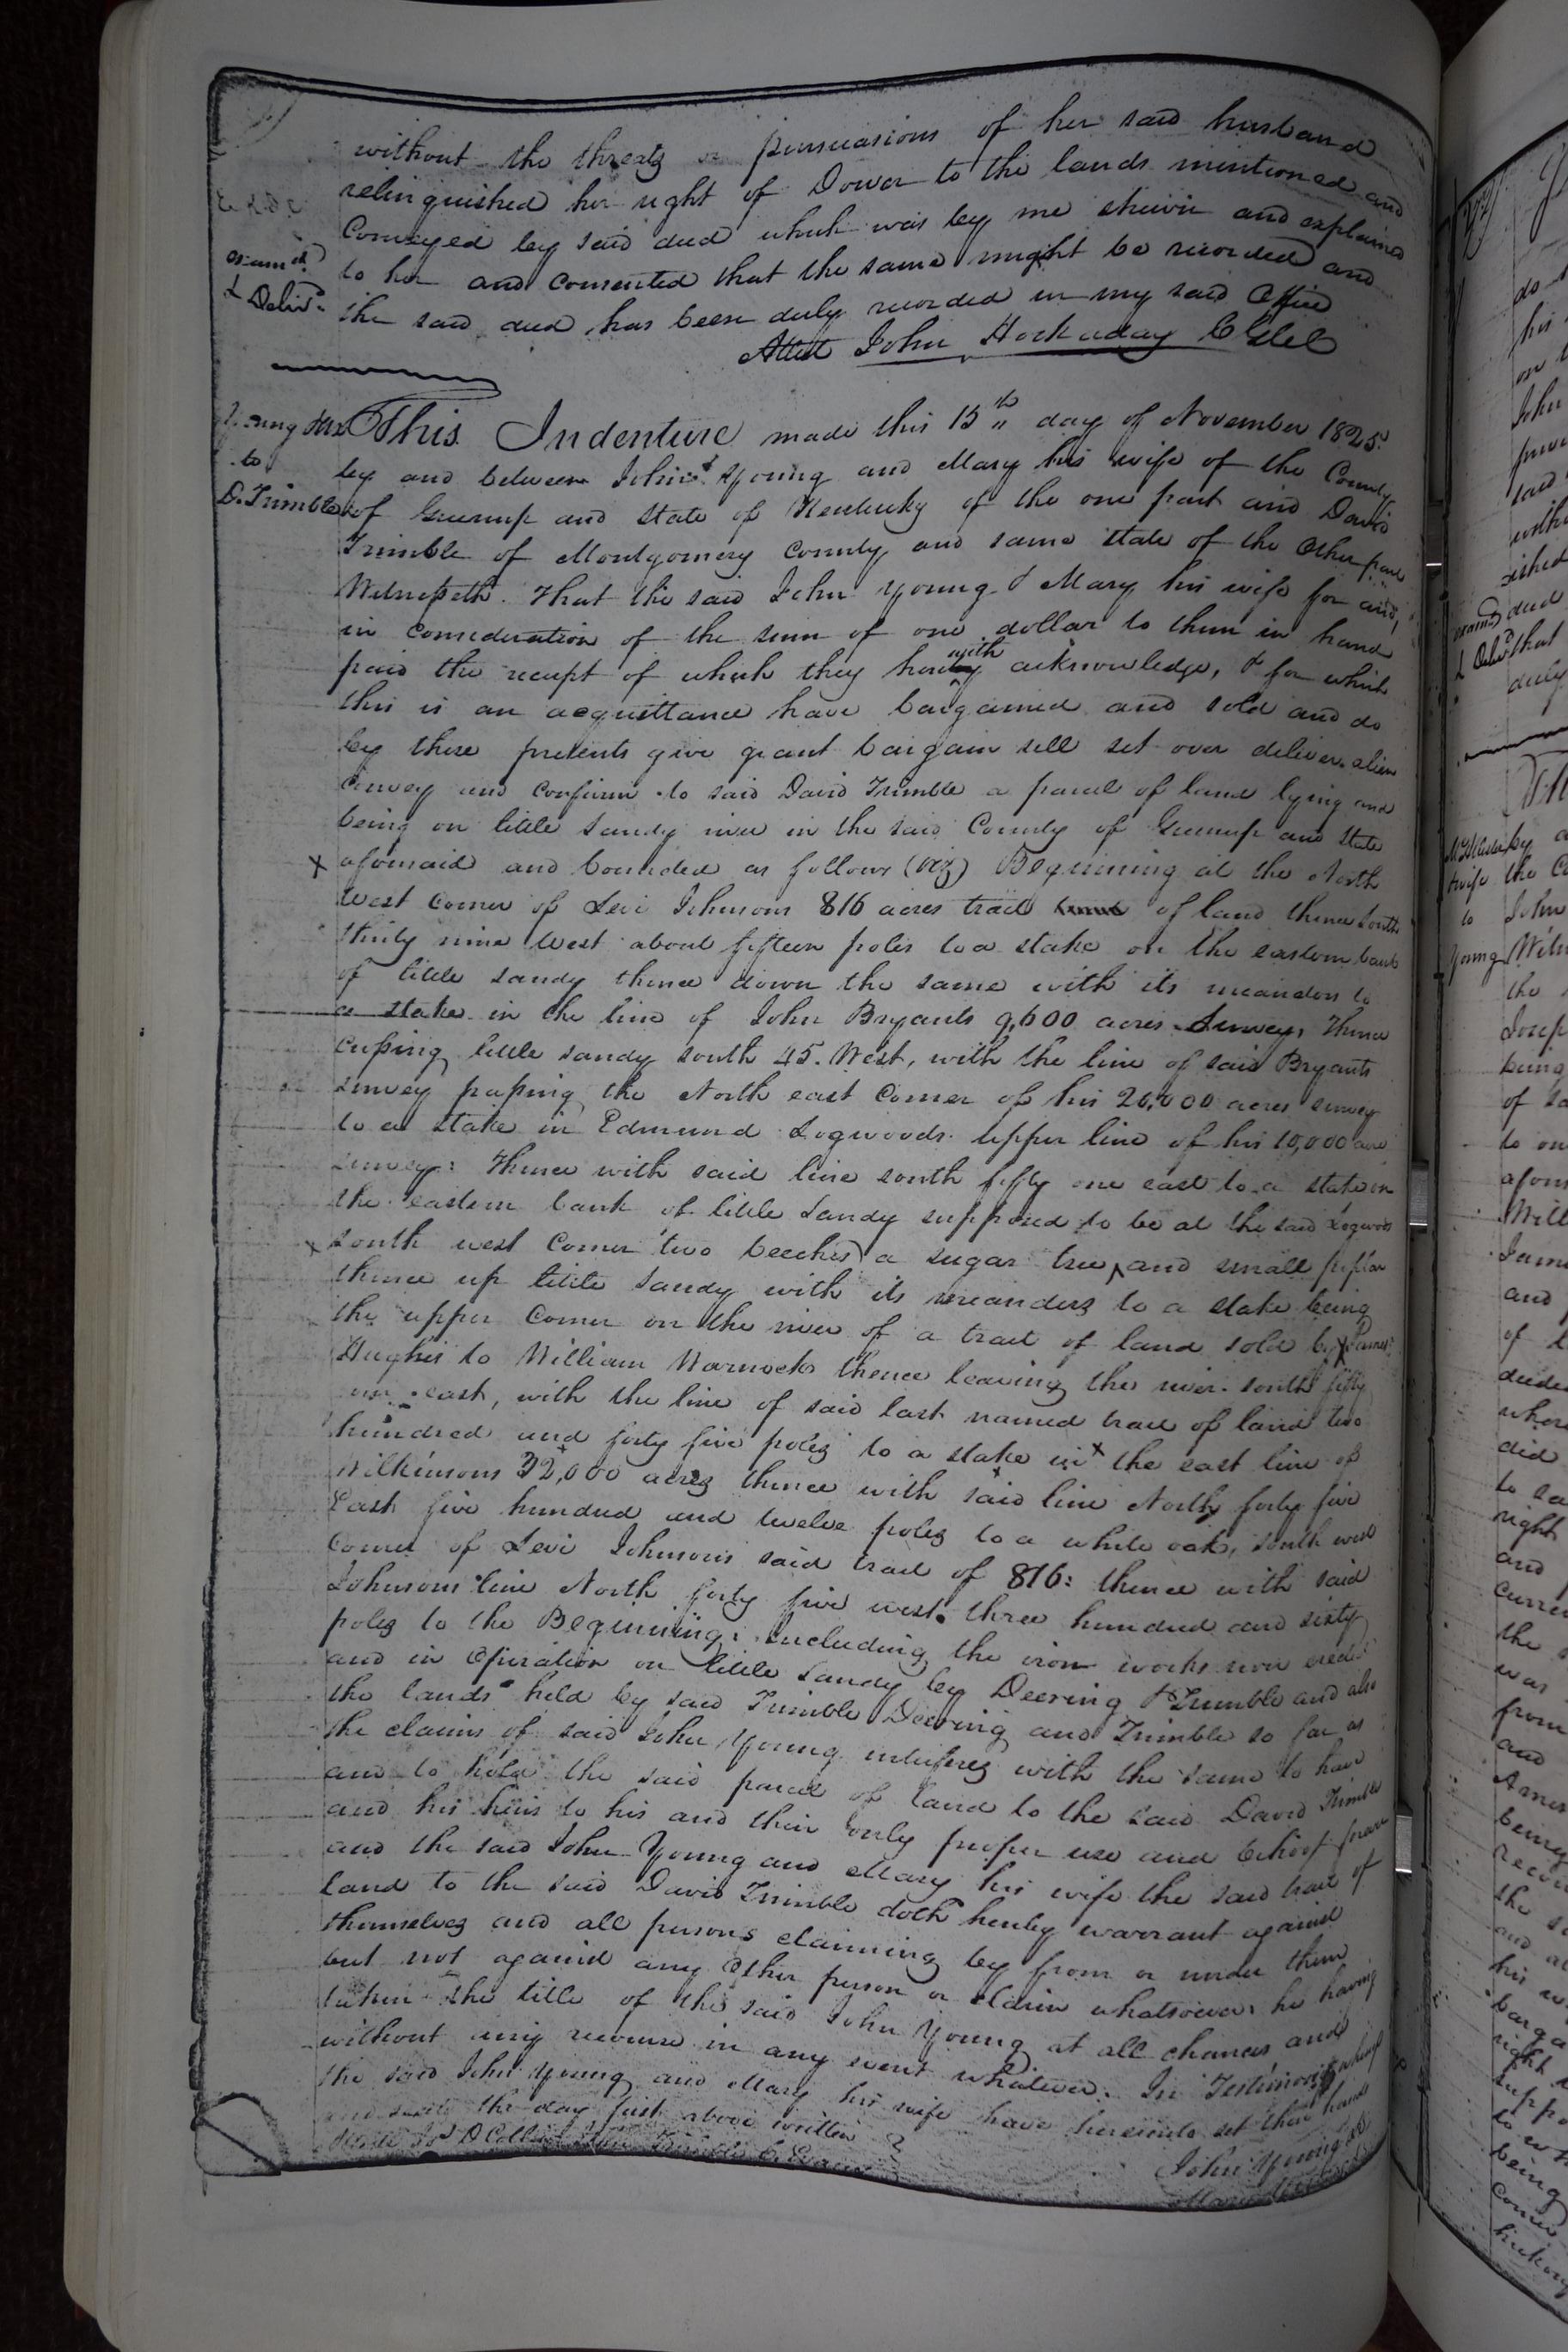 without the threats or persuasions of her said husband
relinquished her right of Dower to the lands mentioned and
Conveyed by said deed which was by me shewn and explained
exam'd to her and consented that the same might be recorded and
& Deliv'd the said deed has been duly recorded in my said Office
Attest John Hockaday C
This Indenture made this 15th day of November 1825
to by and between John Young and Mary his wife of the County
D. Trimble of Greenup and State of Kentucky of the one part and David
Trimble of Montgomery County and same state of the Other part
Witnesseth. That the said John Young & Mary his wife for and
in consideration of the sum of one dollar to them in hand
paid the receipt of which they herewith acknowledge, & for which
this is an acquittance have bargained and sold and do
by these presents give grant bargain sell set over deliver alien
convey and confirm to said David Trimble a parcel of land lying and
being on little Sandy river in the said County of Greenup and State
x aforesaid and bounded as follows (viz) Beginning at the North
West Corner of Levi Johnsons 816 acres tract of land thence South
thirty nine West about fifteen poles to a stake on the eastern bank
of little sandy thence down the same with its meanders to
a stake in the line of John Bryants 9,600 acres Survey, Thence
crossing little sandy south 45. West, with the line of said Bryants
survey passing the North east Corner of his 20,000 acres survey
to a stake in Edmund Logwoods upper line of his 10,000 acre
survey: Thence with said line south fifty one east to a stake on
the eastern bank of little Sandy supposed to be at the said Logwoods
x south west Corner two beeches a sugar tree and small poplar
thence up little Sandy with its meanders to a stake being
the upper Corner on the river of a tract of land sold by James
Hughes to William Warnock thence leaving the river south fifty
one east, with the line of said last named tract of land two
hundred and forty five poles to a stake in the east line of
Wilkinsons 32,000 acres thence with said line North forty five
East five hundred and twelve poles to a white oak, south west
Corner of Levi Johnsons said tract of 816: thence with said
Johnsons line North forty five west three hundred and sixty
poles to the Beginning: Including the iron works now erected
and in Operation on little Sandy by Deering & Trimble and also
the lands held by said Trimble Deering and Trimble so far as
the claims of said John Young interferes with the same to have
and to hold the said parcel of land to the said David Trimble
and his heirs to his and their only proper use and behoof forever
and the said John Young and Mary his wife the said tract of
land to the said David Trimble doth hereby warrant against
themselves and all persons claiming by from or under them
but not against any other person or claim whatsoever he having
taken the title of the said John Young at all chances and
without any recourse in any event whatever. In Testimony whereof
the said John Young and Mary his wife have hereunto set their hands
and seals the day first above written
John Young